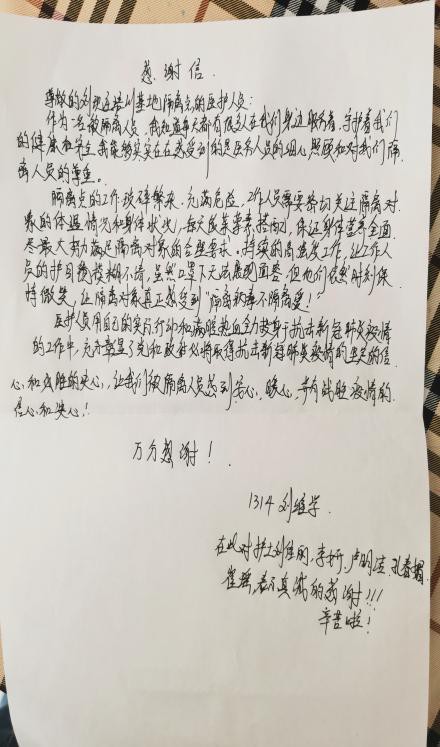 感谢信
尊敬的培训基地隔离点的医护人员:
作为一名被隔离人员,我知道每天都有很多人在我们身边服务着,守护着我们
的健康和安全,我能够实实在在感受到的是医务人员的细心照顾和对我们隔
离人员的尊重。
隔离点的工作琐碎繁杂,充满危险,工作人员需要密切关注隔离对
象的体温情况和身体状况,每天荤素搭配,保证身体营养全面
尽最大努力满足隔离对象的合理要求。持续的高强度工作,让工作人
员的护目镜模糊不清,虽然口罩下无法展现面容,但他们依然时刻保
持微笑,让隔离对象真正感受到"隔离病毒不隔离爱!"
医护人员用自己的实际行动和满腔热血全力投身于抗击新冠肺炎疫情
的工作中,充分彰显了党和政府必将取得抗击新冠肺炎疫情的坚定的信
心和必胜的决心,让我们被隔离人员感到安心,暖心,并有战胜疫情的
信心和决心!
万分感谢!
1314 刘维学
在此对护士刘佳丽,李妍,卢明洁,孔春娟
崔瑶,表示真诚的感谢!!!
辛苦啦!